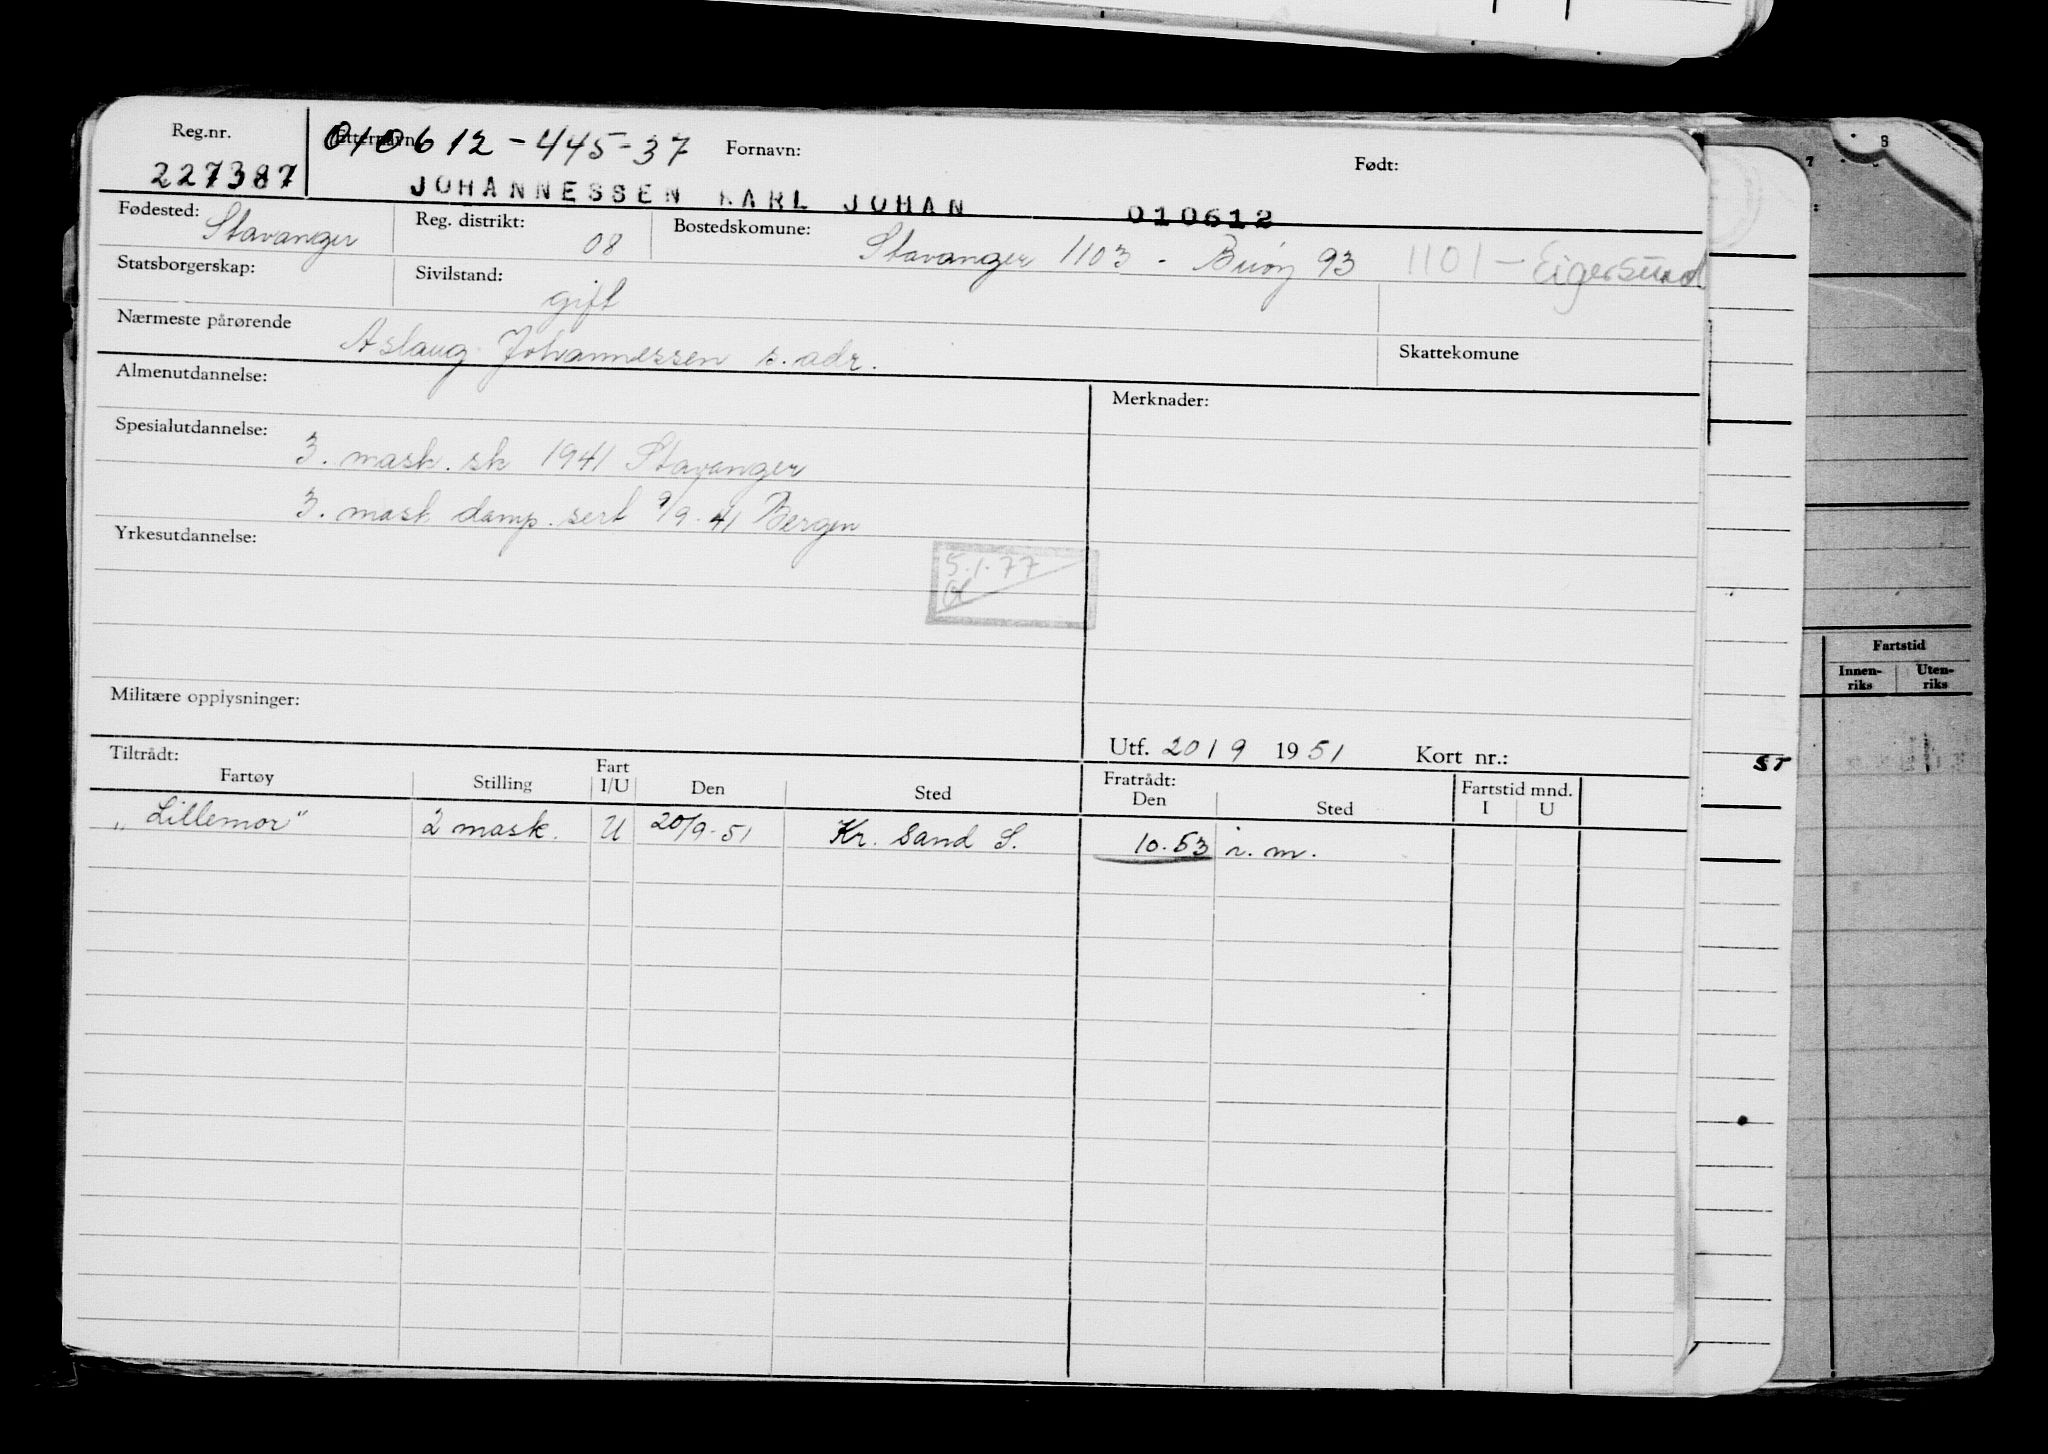 Reg.nr.
227387
Etternavn
010612-445-37
Fornavn:
Født:
JOHANNESSEN KARL JOHAN 010612
Fødested: Stavanger
Reg. distrikt: 08
Bostedskomune: Stavanger 1103 - Buøy 93 1101 - Eigersund
Statsborgerskap:
Sivilstand: gift
Nærmeste pårørende Aslaug Johannessen s. adr.
Skattekomune
Almenutdannelse:
Merknader:
Spesialutdannelse: 3. mask. sk 1941 Stavanger
3. mask damp. sert 9/9-41 Bergen
Yrkesutdannelse:
5.1.77
Militære opplysninger:
Utf. 20/9 1951 Kort nr.:
Tiltrådt:
Fartøy Stilling Fart I/U Den Sted
Fratrådt:
Den Sted
Fartstid mnd.
I U
„Lillemor" 2 mask. U 20/9-51 Kr. sand S. 10.53 i. m.
8
7
Fartstid
Innen-
riks
Uten-
riks
ST